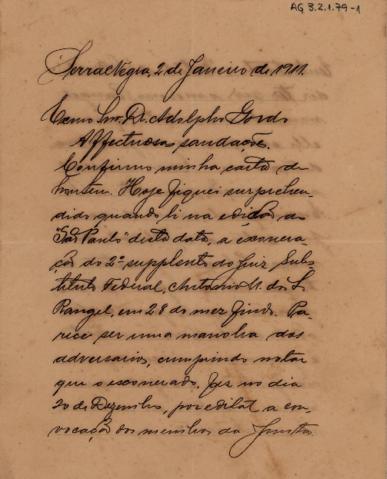 AG 3.2.1.79-1
Serra Negra, 2 de Janeiro de 1911.
Exmo Snr. Dr. Adolpho Gordo
Affectuosas saudações.
Confirmo minha carta de
hontem. Hoje fiquei surprehen-
dido quando li na edição do
"São Paulo" desta data, a exonera-
ção do 2º supplente do Juiz Subs-
tituto Federal, Antonio M. do L.
Rangel, em 28 do mez findo. Pa-
rece ser uma manobra dos
adversarios, cumprindo notar
que o exonerado, fez no dia
20 de Dezembro, por edital a con-
vocação dos membros da Junta